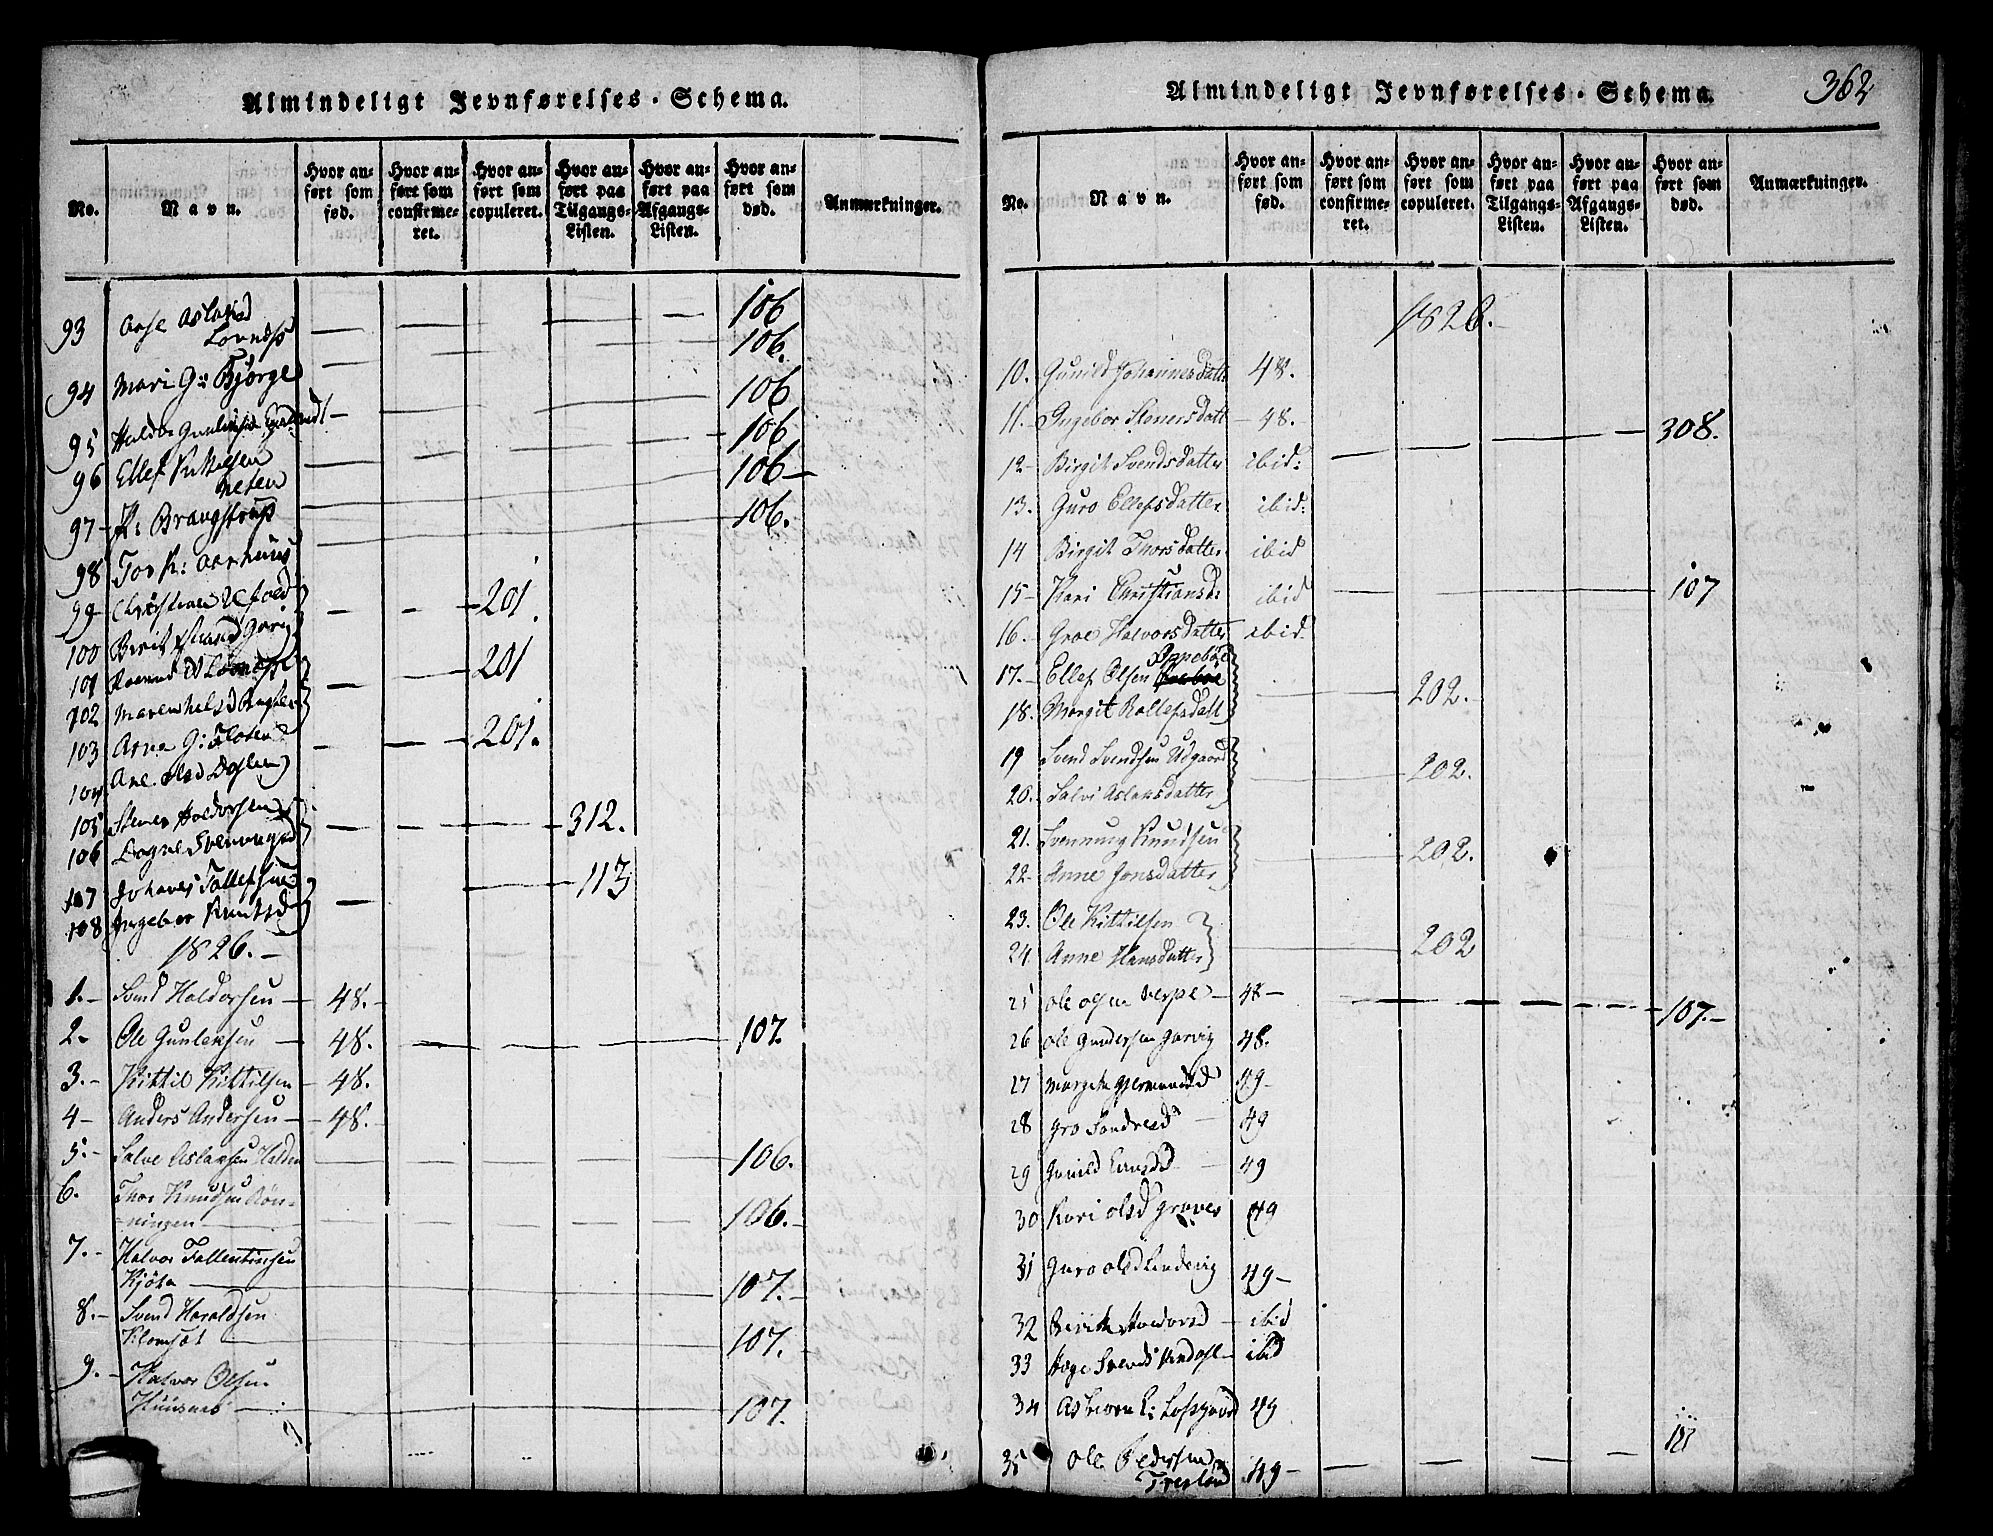 Almindeligt Jevnførelses-Schema.
No.
Navn.
Hvor anført som fød.
Hvor anført som confirmeret.
Hvor anført som copuleret.
Hvor anført paa Tilgangs-Listen.
Hvor anført paa Afgangs-Listen.
Hvor anført som død.
Anmærkninger.
93 Aase Aslaksd 106
106.
94 Mari G: Bjørge 106
95 Haldor 106
96 Ellef Kittelsen 106
97 K: Brangstrup 106.
98 Tor K: Aarhuus
99 Christian
100 Berit 201.
101
102 Maren 201
103 Arne G: Floten
104 Ane Olsd 201.
105 Stener Haldorsen
106 Dagne 312.
107 Johanes Tollefsen
108 Ingebor Knutsd 113
1826.
1. Svend Haldorsen 48.
2. Ole Gunleksen 48. 107.
3. Kittil Kittilsen 48.
4 Anders Andersen 48.
5. Salve Aslaksen 106.
6. Thor Knudsen Røn-
ningen 106.
7. Halvor Tallentinsen
Kjøta 107.
8. Svend Haraldsen
Klomset 107.
9. Halvor Olsen
Huusnes 107.
Almindeligt Jevnførelses-Schema.
362
No.
Navn.
Hvor anført som fød.
Hvor anført som confirmeret.
Hvor anført som copuleret.
Hvor anført paa Tilgangs-Listen.
Hvor anført paa Afgangs-Listen.
Hvor anført som død.
Anmærkninger.
1826.
10. Gunild Johannesdatt 48.
11. Ingebor Stenersdatt 48. 308.
12 Birgit Svendsdatter ibid:
13. Guro Ellefsdatter ibid:
14 Birgit Thorsdatter ibid
15 Kari Christiansd: ibid 107
16. Groe Halvorsdatter ibid
17. Ellef Olsen Oppebøe
18. Margit Rollefsdatt 202.
19 Svend Svendsen Udgaard
20. Salvi Aslaksdatter 202.
21. Svennung Knudsen
22 Anne Jonsdatter 202.
23. Ole Kittilsen
24. Anne Hansdatter 202
25 Ole Olsen Verpe 48 107.
26 Ole Gundersen Garvig 48.
27 Margit Gjermundsd 49
28 Gro Sondresd 49
29 Gunild Evensd 49
30 Kari Olsd Graver 49
31 Guro Olsd Lindevig 49
32 Birith Halvorsd ibid
33 Aage Svends ibid
34 Asbiorn E: 49
35 Ole Pedersen
Treland 49 111